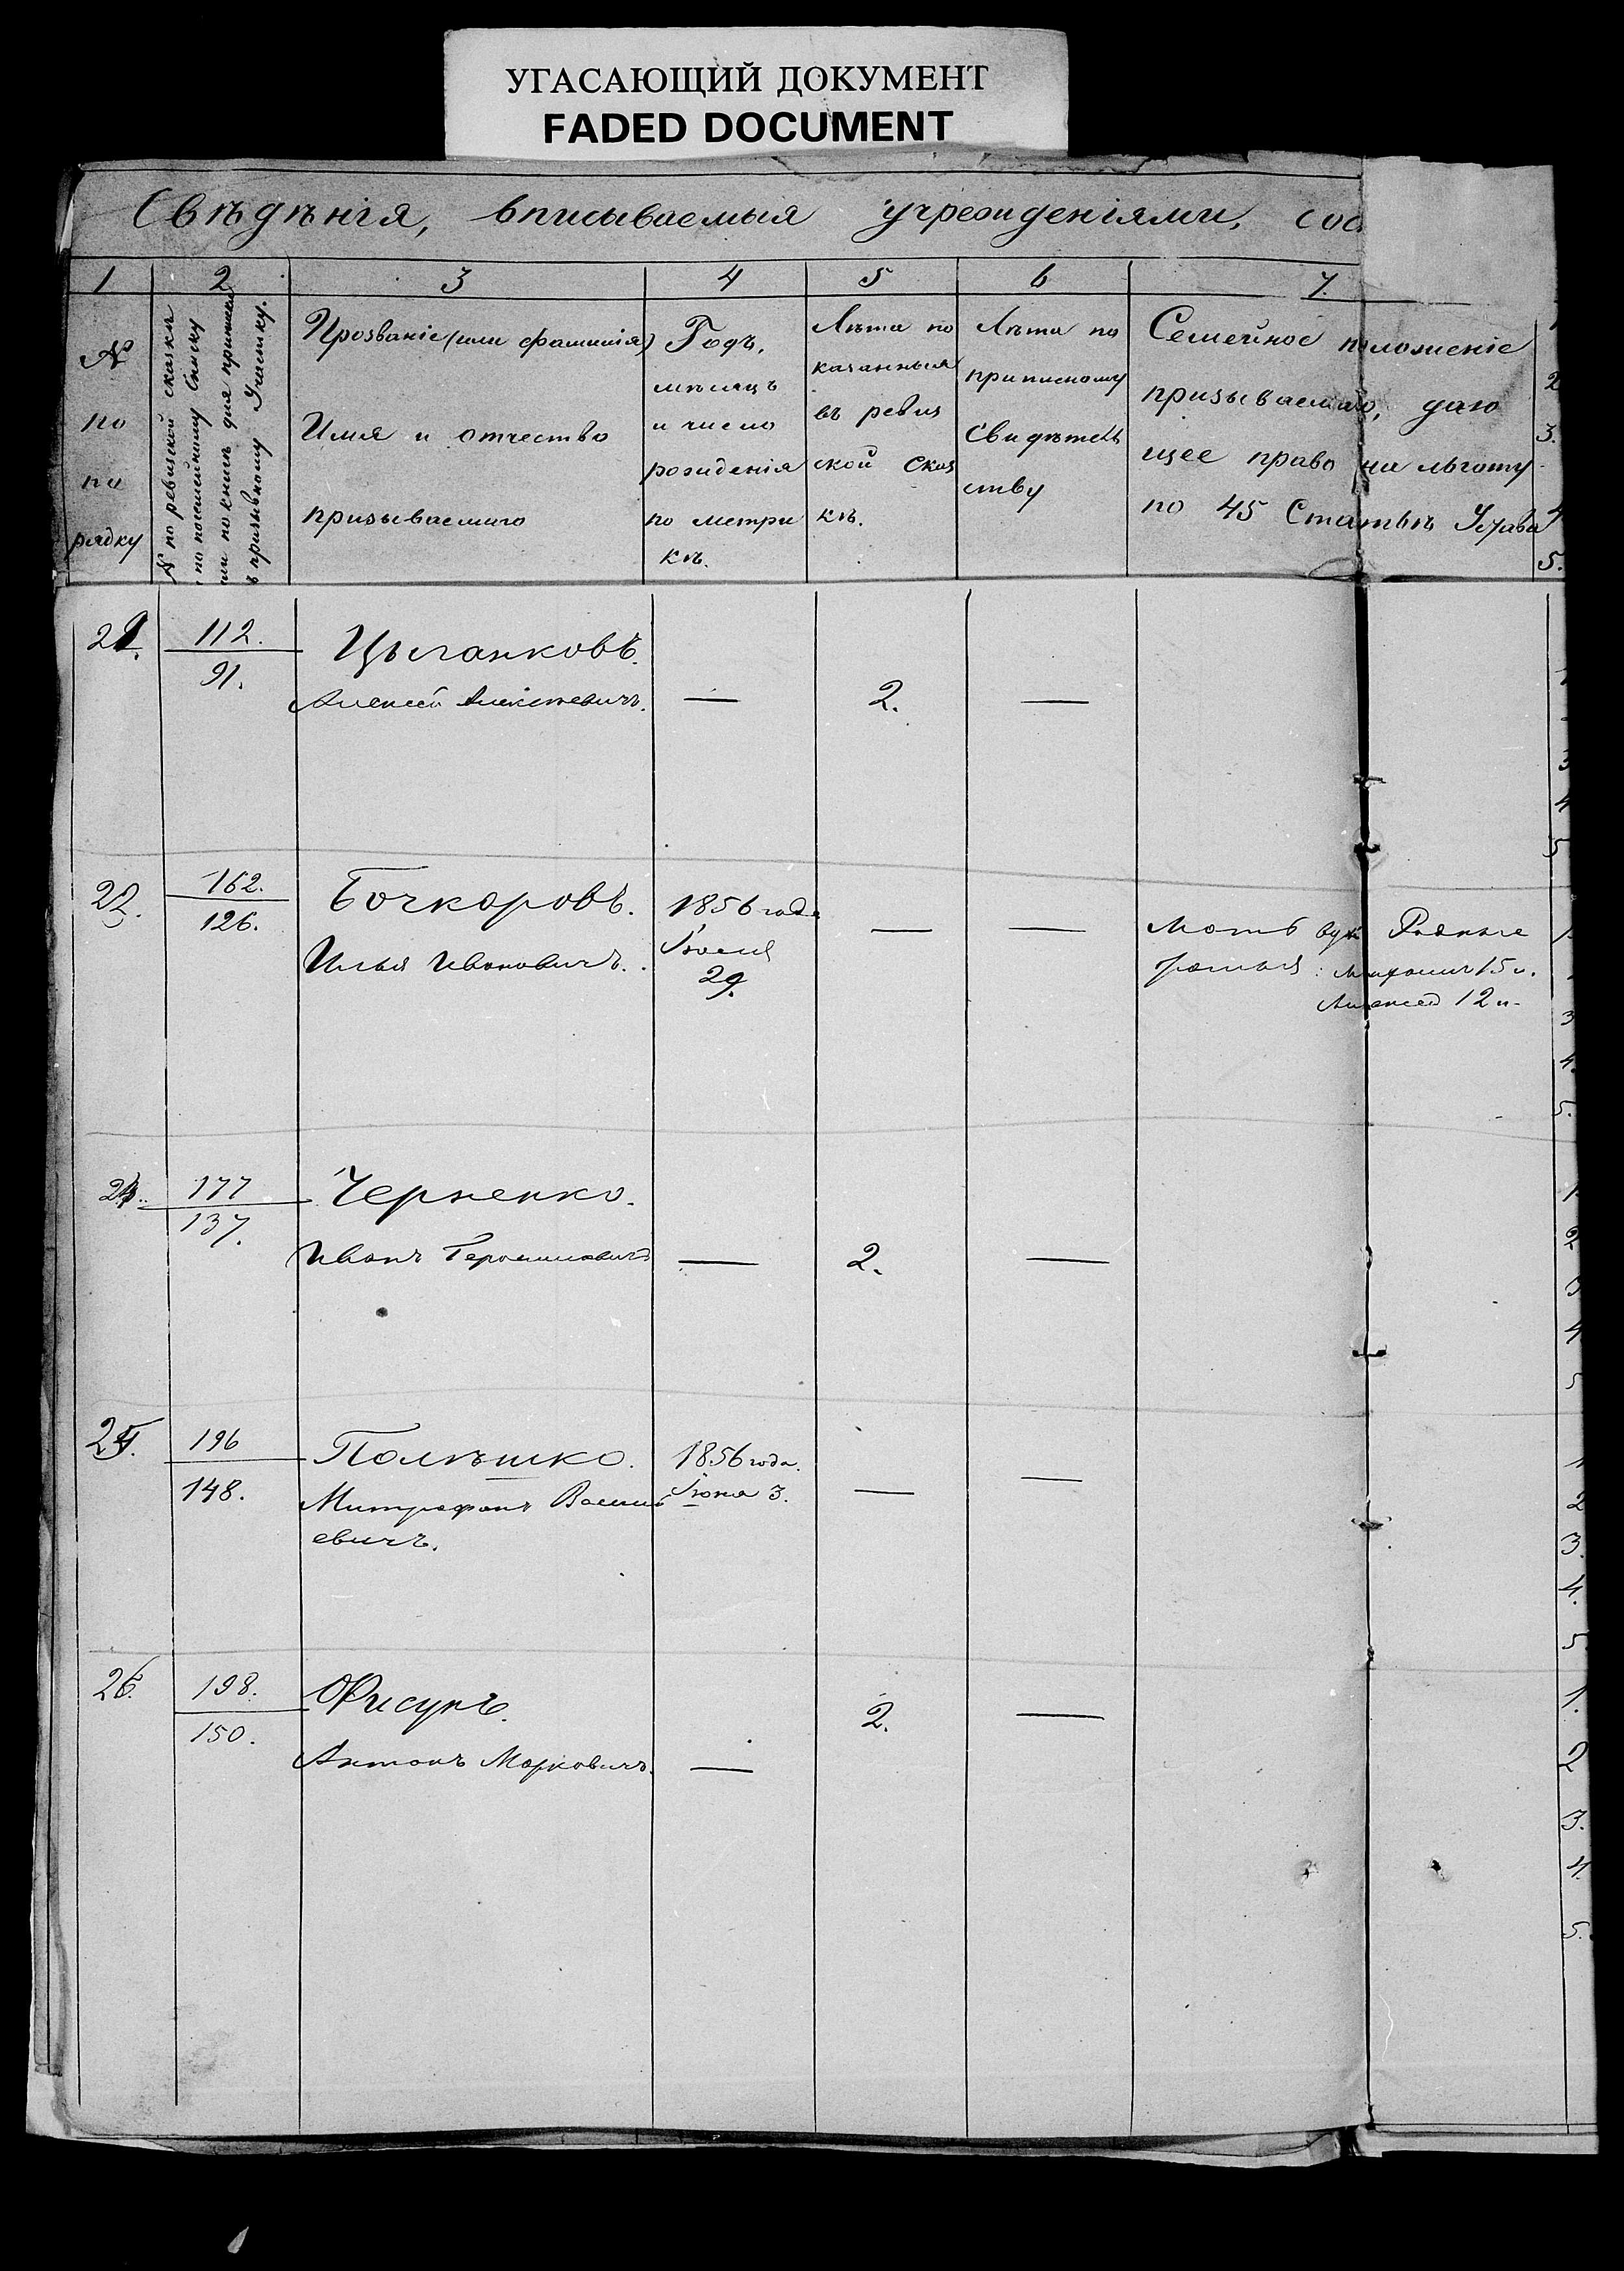 УГАСАЮЩИЙ ДОКУМЕНТ
FADED DOCUMENT
Свѣдѣнія, вписываемыя учрежденіями, сос
1 2 3 4 5 6 7.
№
по
по
рядку
№ по ревизской сказкѣ
по посемейному списку
или по книгѣ для приписки
къ призывному Участку.
Прозваніе (или фамилія)
Имя и отчество
призываемаго
Годъ,
мѣсяцъ
и число
рожденія
по метри
кѣ.
Лѣта по
казанныя
въ ревиз
ской сказ
кѣ.
Лѣта по
приписному
свидѣтель
ству
Семейное положеніе
призываемаго, даю
щее право на льготу
по 45 Статьѣ Устава
1
2
3.
4
5.
112.
91.
Цыганковъ.
Алексей Алексѣевичъ.
—
2.
—
3
4
5
22.
162.
126.
Бочкаровъ.
Илья Ивановичъ.
1856 года
Іюля
29.
—
—
Мать
Родные
15 л.
Алексей 12 л.
1.
3
4.
5.
177
137.
Черненко.
Иванъ Герасимовичъ
—
2.
—
1
2
3
4
5
196
148.
Полѣшко.
Митрофанъ Василь
евичъ.
1856 года.
Іюня 3.
—
—
1
2
3.
4.
5.
26.
198.
150.
Фисунъ.
Антонъ Марковичъ.
—
2.
—
1.
2
3.
4.
5.